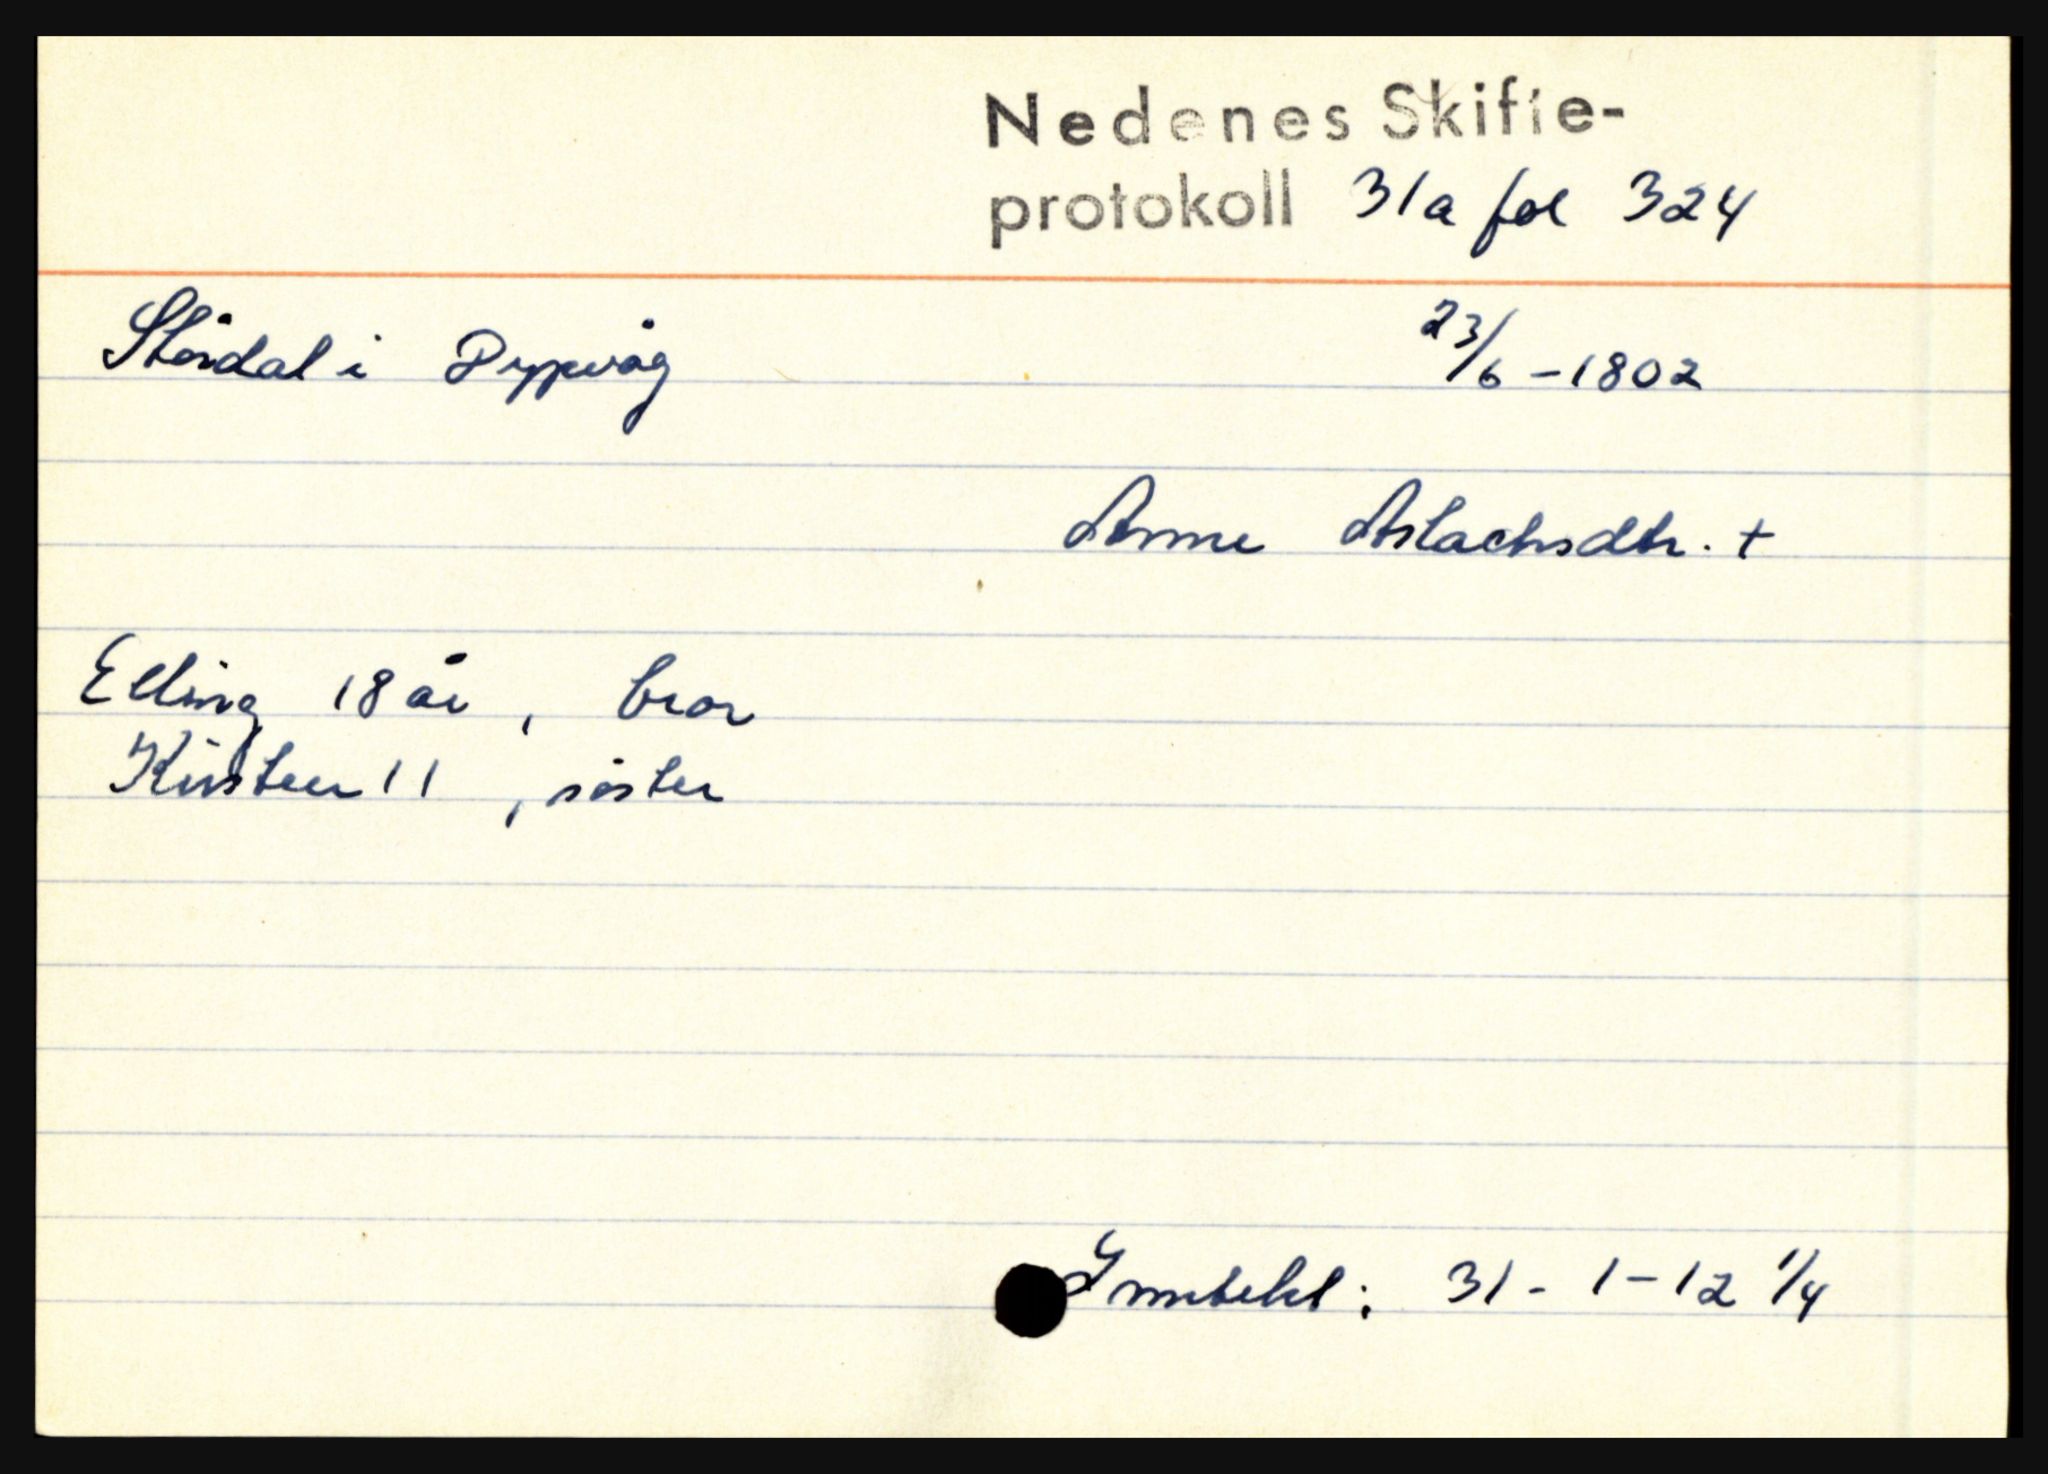 Nedenes Skifte-
protokoll 31a fol 324
Stårdal i Dypvåg 23/6 - 1802
Anne Aslachsdtr. +
Elling 18 år, bror
Kirsten 11, söster
Inntekt: 31 - 1 - 12 1/4